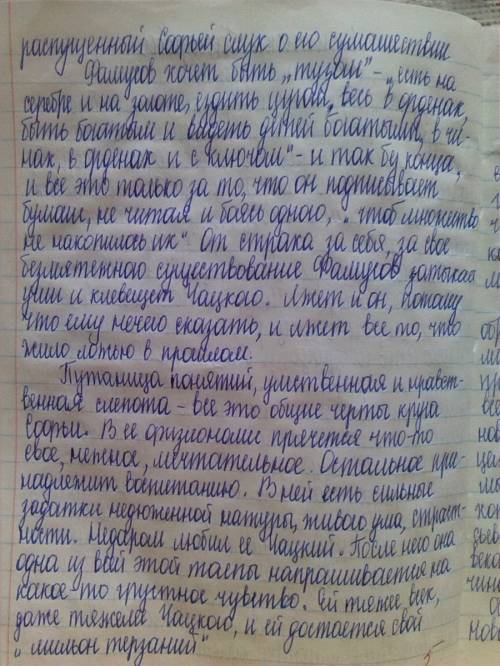 распущенный Софьей слух о его сумашествии
Фамусов хочет быть „тузом" – „есть на
серебре и на золоте, ездить цугом, весь в орденах,
быть богатым и видеть детей богатыми, в чи-
нах, в орденах и с ключом" – и так без конца,
и все это только за то, что он подписывает
бумаги, не читая и боясь одного, „чтоб множество
не накопилось их". От страха за себя, за свое
безмятежного существование Фамусов затыкая
уши и клевещет Чацкого. Лжет и он, потому
что ему нечего сказать, и лжет все то, что
жило ложью в прошлом.
Путаница понятий, умственная и нравст-
венная слепота – все это общие черты круга
Софьи. В ее физиономии прячется что-то
свое, нежное, мечтательное. Остальное при-
надлежит воспитанию. В ней есть сильные
задатки недюженной натуры, живого ума, страст-
ности. Недаром любил ее Чацкий. После него она
одна из всей этой толпы напрашивается на
какое-то грустное чувство. Ей тяжее всех,
даже тяжелее Чацкого, и ей достается свой
„мильон терзаний"